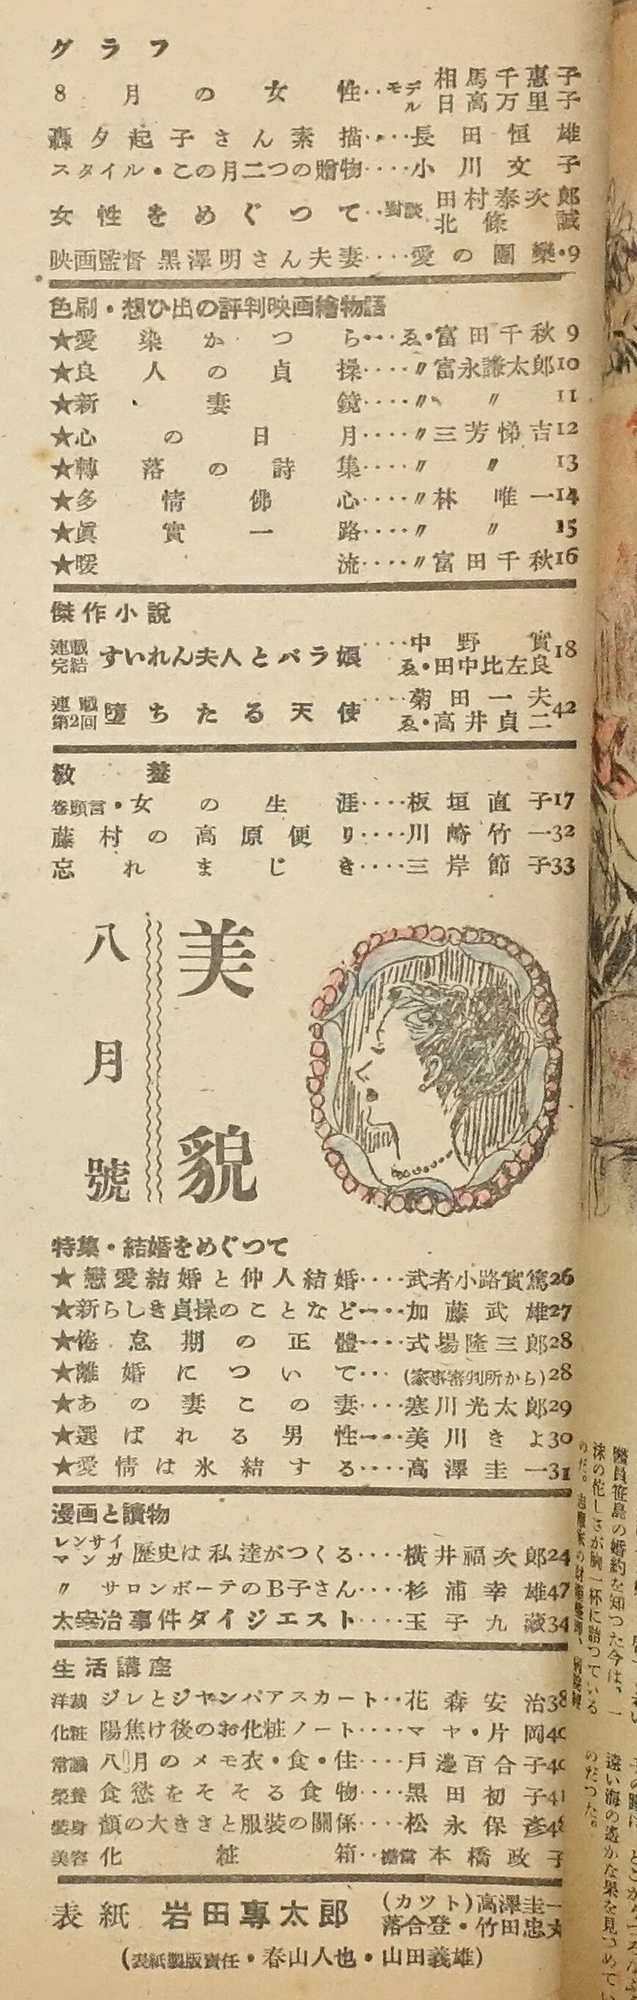 グラフ
8月の女性‥モデル 相馬千惠子 日高万里子
轟夕起子さん素描‥‥長田恒雄
スタイル・この月二つの贈物‥‥小川文子
女性をめぐつて‥対談 田村泰次郎 北條誠
映画監督 黒澤明さん夫妻‥‥愛の團欒・9
色刷・想ひ出の評判映画繪物語
★愛染かつら‥‥ゑ・富田千秋9
★良人の貞操‥‥〃富永謙太郎10
★新妻鏡‥‥〃 〃 11
★心の日月‥‥〃三芳悌吉12
★轉落の詩集‥‥〃 〃 13
★多情佛心‥‥〃林唯一14
★眞實一路‥‥〃 〃 15
★暖流‥‥〃富田千秋16
傑作小說
連載完結 すいれん夫人とバラ娘‥‥中野實 ゑ・田中比左良18
連載第2回 墮ちたる天使‥‥菊田一夫 ゑ・高井貞二42
敎養
巻頭言・女の生涯‥‥板垣直子17
藤村の高原便り‥‥川崎竹一32
忘れまじき‥‥三岸節子33
美貌
八月號
特集・結婚をめぐつて
★戀愛結婚と仲人結婚‥‥武者小路實篤26
★新らしき貞操のことなど‥‥加藤武雄27
★倦怠期の正體‥‥式場隆三郎28
★離婚について‥‥(家事審判所から)28
★あの妻この妻‥‥寒川光太郎29
★選ばれる男性‥‥美川きよ30
★愛情は氷結する‥‥高澤圭一31
漫画と讀物
レンサイマンガ 歴史は私達がつくる‥‥横井福次郎24
〃 サロンボーテのB子さん‥‥杉浦幸雄47
太宰治事件ダイジェスト‥‥玉子九藏34
生活講座
洋裁 ジレとジャンパアスカート‥花森安治38
化粧 陽焦け後のお化粧ノート‥‥マヤ・片岡40
常識 八月のメモ衣・食・住‥‥戸邊百合子40
榮養 食慾をそそる食物‥‥黒田初子41
裝身 顔の大きさと服裝の關係‥‥松永保彦
美容 化粧箱‥ 本橋政子
表紙 岩田專太郎 (カット)高澤圭一 落合登・竹田忠
(表紙製版責任・春山人也・山田義雄)
醫員笹島の婚約を知つた今は、一
沫の佗しさが胸一杯に詰つている
のだ。
遠い海の遥かな果を見つめてい
のだつた。